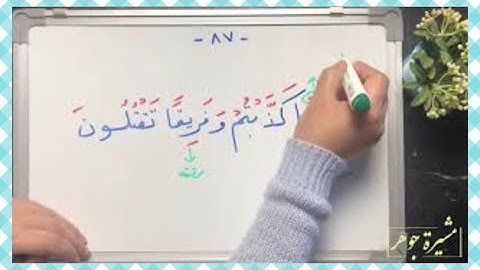 - ٨٧ -
كَذَّبْتُمْ وَفَرِيقًا تَقْتُلُونَ
مشيرة جوهر